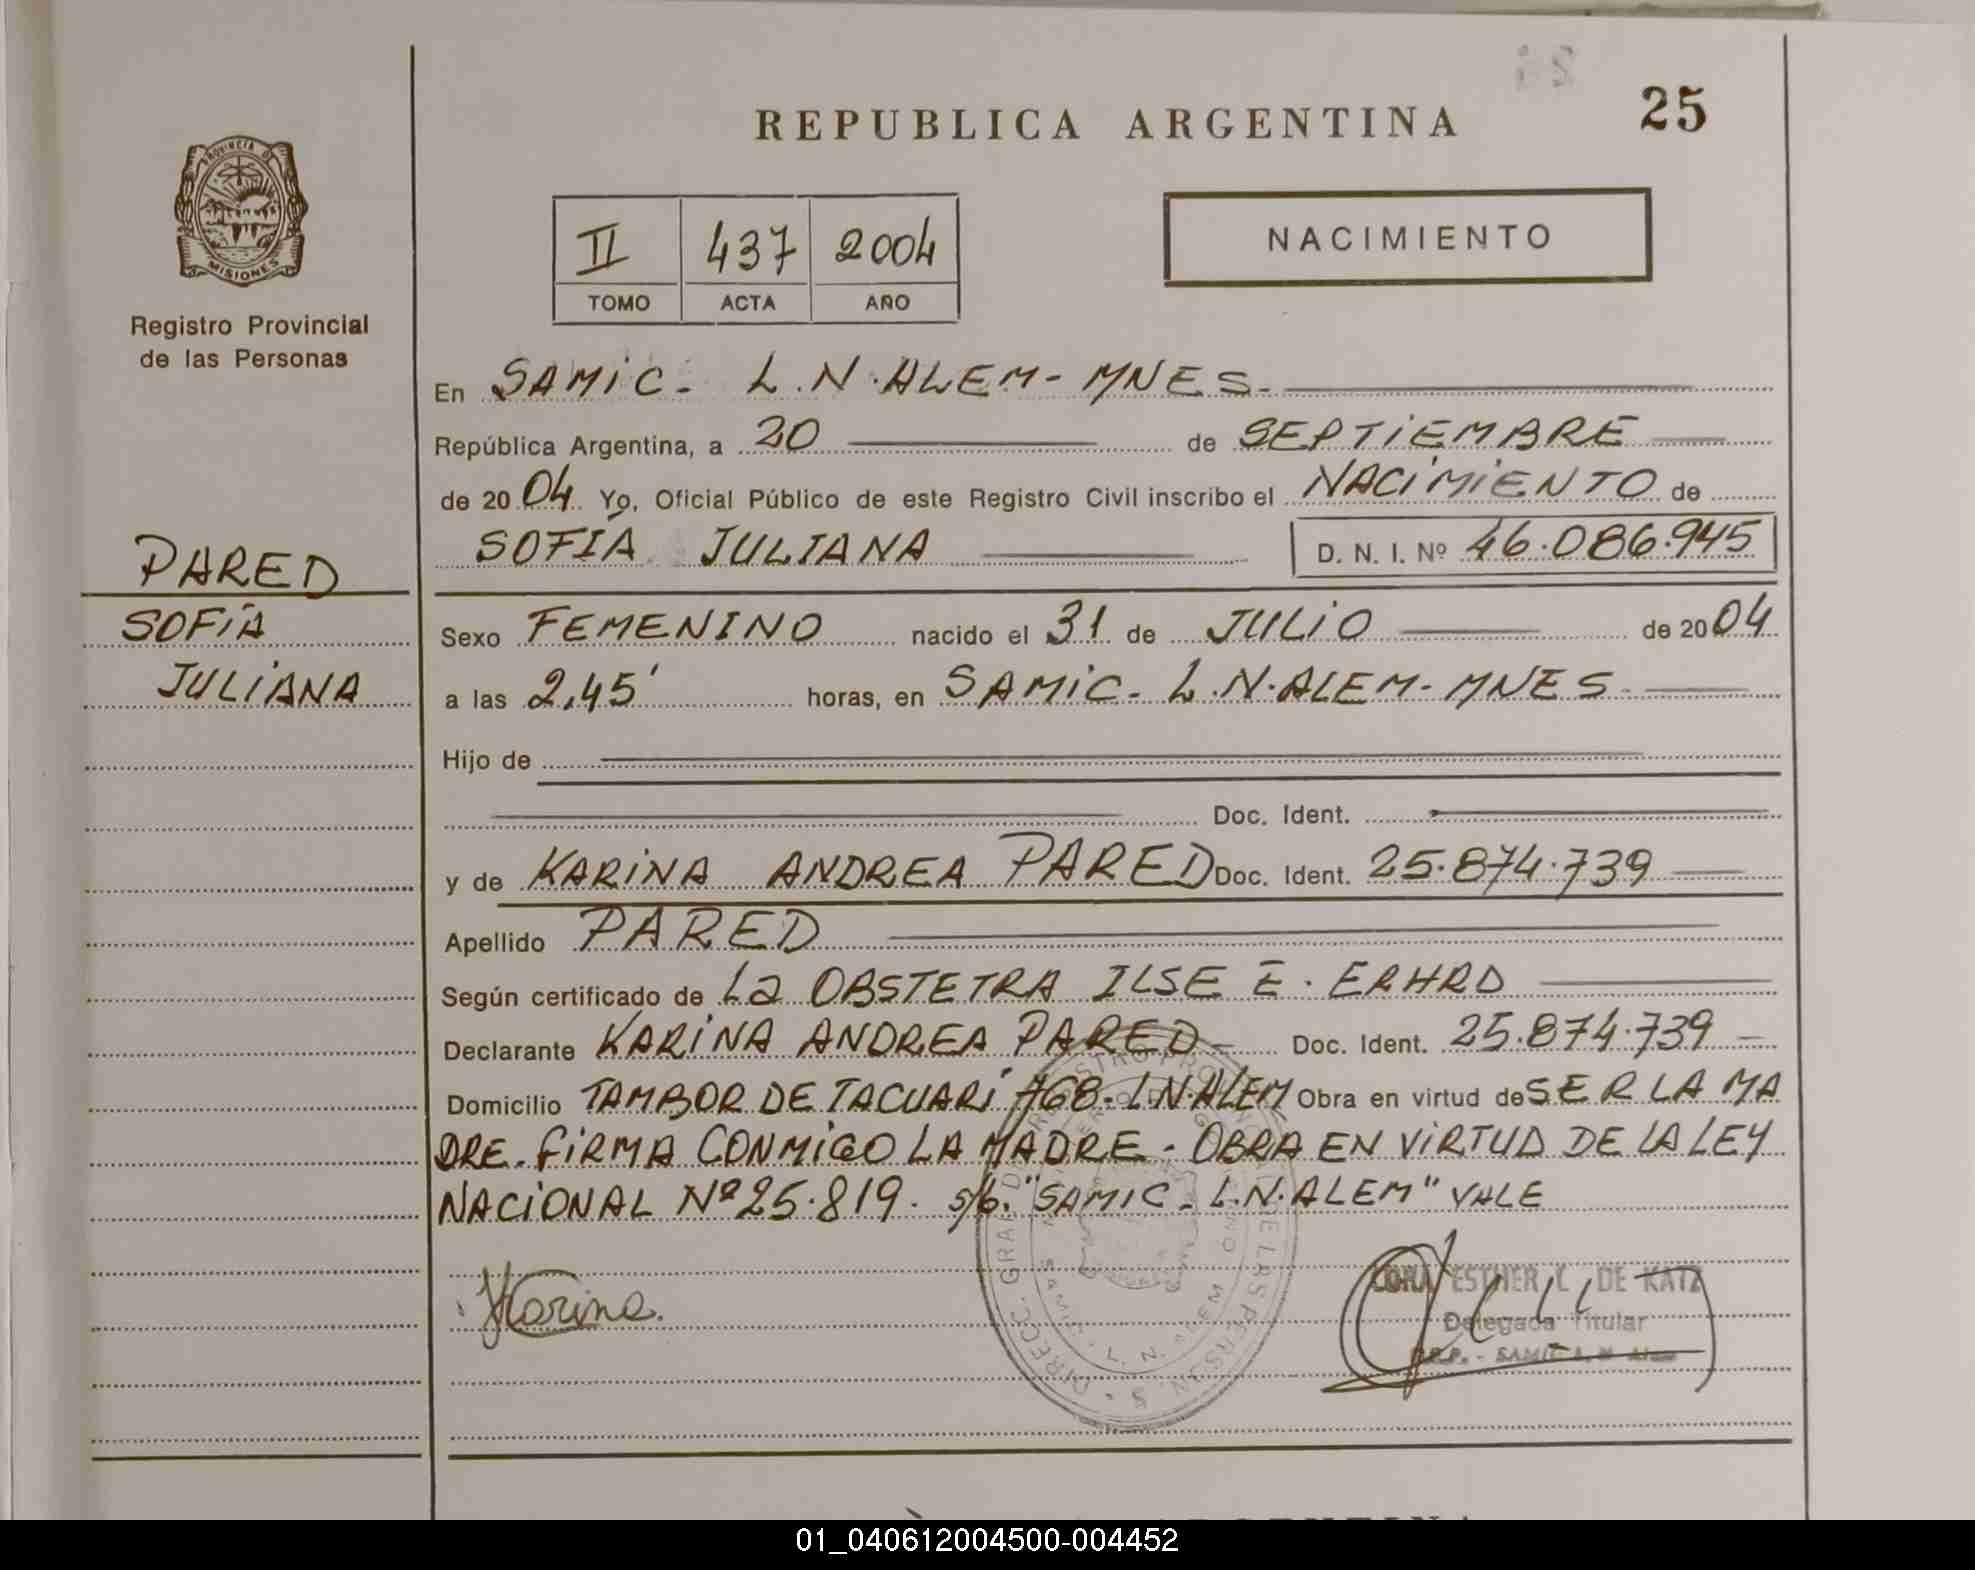 REPUBLICA ARGENTINA
25
PROVINCIA DE
MISIONES
Registro Provincial
de las Personas
II 437 2004
TOMO ACTA AÑO
NACIMIENTO
En SAMIC- L.N.ALEM-MNES-
República Argentina, a 20 de SEPTIEMBRE
de 2004 Yo, Oficial Público de este Registro Civil inscribo el NACIMIENTO de
SOFÍA JULIANA D. N. I. Nº 46.086.945
PARED
SOFÍA
JULIANA
Sexo FEMENINO nacido el 31 de JULIO de 2004
a las 2,45' horas, en SAMIC- L.N.ALEM-MNES-
Hijo de
Doc. Ident.
y de KARINA ANDREA PARED Doc. Ident. 25.874.739
Apellido PARED
Según certificado de La OBSTETRA ILSE E. ERHRD
Declarante KARINA ANDREA PARED- Doc. Ident. 25.874.739-
Domicilio TAMBOR DE TACUARÍ 768-L.N.ALEM Obra en virtud de SER LA MA
DRE. FIRMA CONMIGO LA MADRE-OBRA EN VIRTUD DE LA LEY
NACIONAL Nº25.819. s/b."SAMIC-L.N.ALEM" VALE
Karina.
ESTHER L. DE KATZ
Delegada Titular
01_040612004500-004452